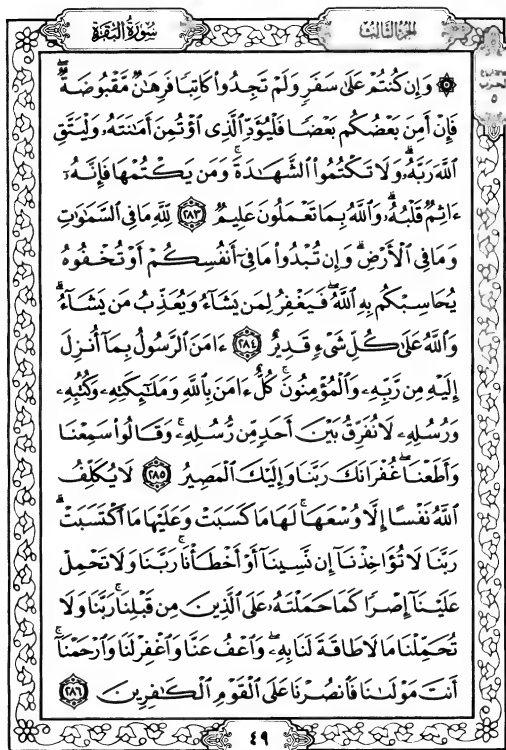 سُورَةُ البَقَرَةِ
الجزء الثالث
الحزب
٥
۞ وَإِن كُنتُمْ عَلَىٰ سَفَرٍ وَلَمْ تَجِدُوا۟ كَاتِبًا فَرِهَٰنٌ مَّقْبُوضَةٌ ۖ
فَإِنْ أَمِنَ بَعْضُكُم بَعْضًا فَلْيُؤَدِّ ٱلَّذِى ٱؤْتُمِنَ أَمَٰنَتَهُۥ وَلْيَتَّقِ
ٱللَّهَ رَبَّهُۥ ۗ وَلَا تَكْتُمُوا۟ ٱلشَّهَٰدَةَ ۚ وَمَن يَكْتُمْهَا فَإِنَّهُۥٓ
ءَاثِمٌ قَلْبُهُۥ ۗ وَٱللَّهُ بِمَا تَعْمَلُونَ عَلِيمٌ ٢٨٣ لِّلَّهِ مَا فِى ٱلسَّمَٰوَٰتِ
وَمَا فِى ٱلْأَرْضِ ۗ وَإِن تُبْدُوا۟ مَا فِىٓ أَنفُسِكُمْ أَوْ تُخْفُوهُ
يُحَاسِبْكُم بِهِ ٱللَّهُ ۖ فَيَغْفِرُ لِمَن يَشَآءُ وَيُعَذِّبُ مَن يَشَآءُ ۗ
وَٱللَّهُ عَلَىٰ كُلِّ شَىْءٍ قَدِيرٌ ٢٨٤ ءَامَنَ ٱلرَّسُولُ بِمَآ أُنزِلَ
إِلَيْهِ مِن رَّبِّهِۦ وَٱلْمُؤْمِنُونَ ۚ كُلٌّ ءَامَنَ بِٱللَّهِ وَمَلَٰٓئِكَتِهِۦ وَكُتُبِهِۦ
وَرُسُلِهِۦ لَا نُفَرِّقُ بَيْنَ أَحَدٍ مِّن رُّسُلِهِۦ ۚ وَقَالُوا۟ سَمِعْنَا
وَأَطَعْنَا ۖ غُفْرَانَكَ رَبَّنَا وَإِلَيْكَ ٱلْمَصِيرُ ٢٨٥ لَا يُكَلِّفُ
ٱللَّهُ نَفْسًا إِلَّا وُسْعَهَا ۚ لَهَا مَا كَسَبَتْ وَعَلَيْهَا مَا ٱكْتَسَبَتْ ۗ
رَبَّنَا لَا تُؤَاخِذْنَآ إِن نَّسِينَآ أَوْ أَخْطَأْنَا ۚ رَبَّنَا وَلَا تَحْمِلْ
عَلَيْنَآ إِصْرًا كَمَا حَمَلْتَهُۥ عَلَى ٱلَّذِينَ مِن قَبْلِنَا ۚ رَبَّنَا وَلَا
تُحَمِّلْنَا مَا لَا طَاقَةَ لَنَا بِهِۦ ۖ وَٱعْفُ عَنَّا وَٱغْفِرْ لَنَا وَٱرْحَمْنَآ ۚ
أَنتَ مَوْلَىٰنَا فَٱنصُرْنَا عَلَى ٱلْقَوْمِ ٱلْكَٰفِرِينَ ٢٨٦
٤٩